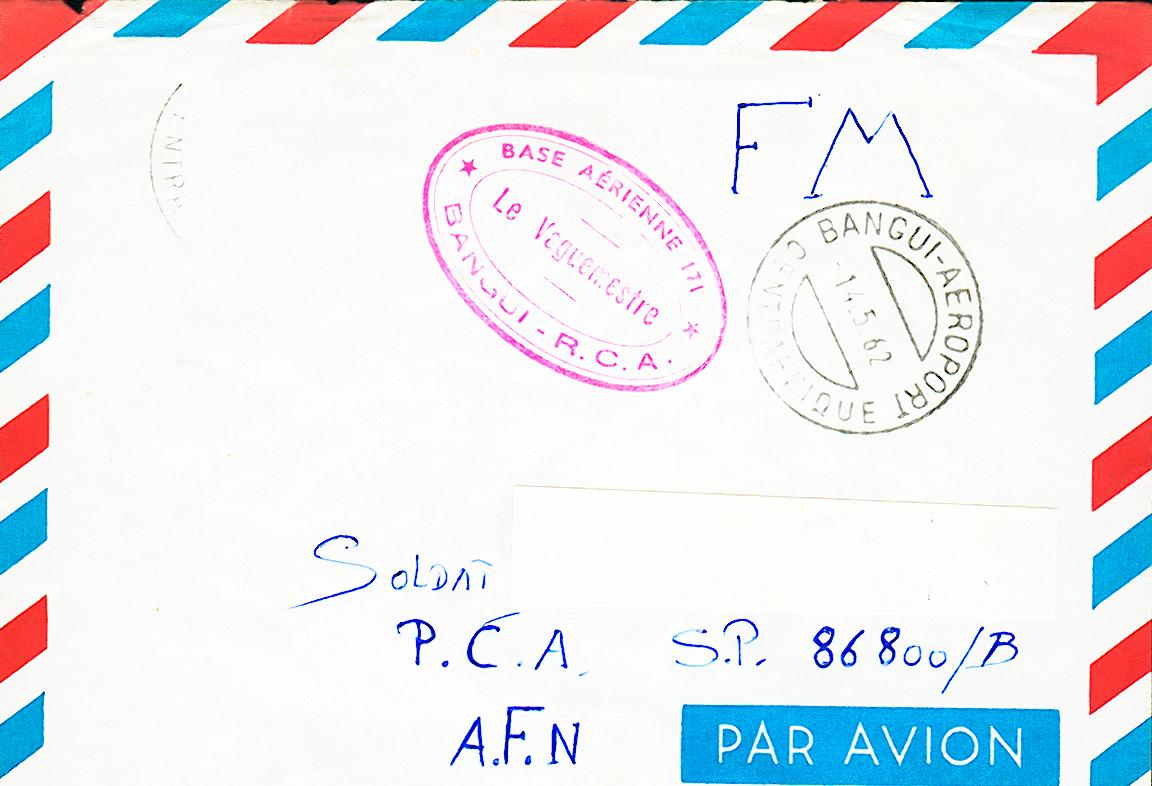 FM
BASE AÉRIENNE 171
Le Vaguemestre
BANGUI - R.C.A.
BANGUI-AEROPORT
-14.5 62
CENTRAFRIQUE
SOLDAT
P.C.A. S.P. 86800/B
A.F.N
PAR AVION